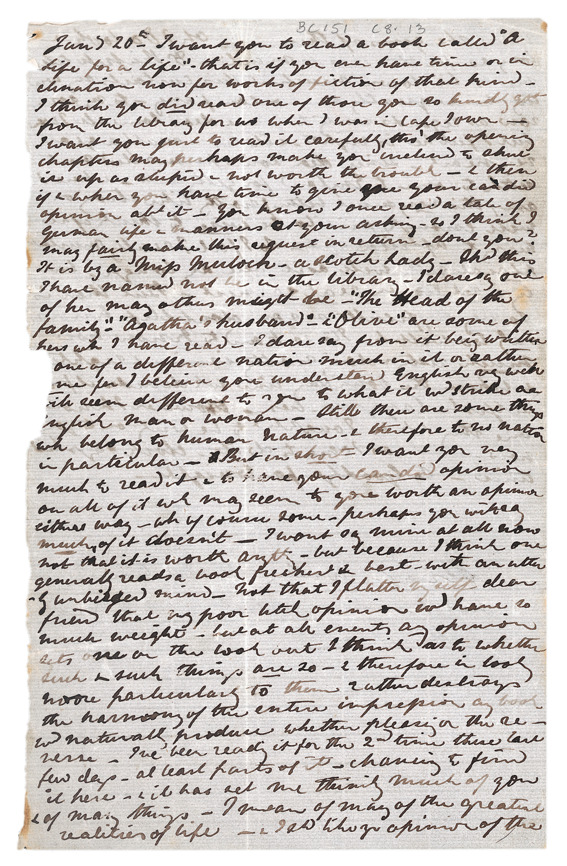 BC 151 C8.13
Jan) 20th I want you to read a book called "A
Life for a life" - that is if you ever have time or in
clination now for works of fiction of that kind -
I think you did read one of those you so kindly got
from the library for us when I was in Cape Town -
I want you just to read it carefully, tho' the opening
chapters may perhaps make you inclined to shut
it up as stupid & not worth the trouble - & then
if & when you have time to give me your candid
opinion abt it - You know I once read a tale of
German life & manners at your asking - so I think I
may fairly make this request in return - dont you?
It is by a Miss Muloch - a Scotch lady - Tho' this
I have named not be in the library - I daresay one
of her many others might be - "The Head of the
family" - "Agatha's husband" - & "Olive" are some of
hers wh I have read - I daresay from it being written
one of a different nation much in it or rather
me for I believe you understand English ve well
will seem different to you to what it wd strike an
nglish man or woman - Still there are some things
wh belong to human nature - & therefore to no nation
in particular - But in short I want you very
much to read it & to have your candid opinion
on all of it wh may seem to you worth an opinion
either way - wh of course some - perhaps you will say
much, of it doesn't - I wont say mine at all now
not that it is worth anyth - but because I think one
generally reads a book freshest & best - with an utter
ly unbiassed mind - Not that I flatter myself dear
friend that my poor litl opinion wd have so
much weight - but at all events any opinion
sets one on the look out I think as to whether
such & such things are so - & therefore in look
more particularly to them rather destroys
the harmony of the entire impression any book
wd naturally produce whether pleasg or the re -
verse - I've been readg it for the 2nd time these last
few days - at least parts of it - chancing to find
it here - & it has set me thinkg much of you
& of many things - I mean of many of the greatest
realities of life - & I shd like yr opinion of the